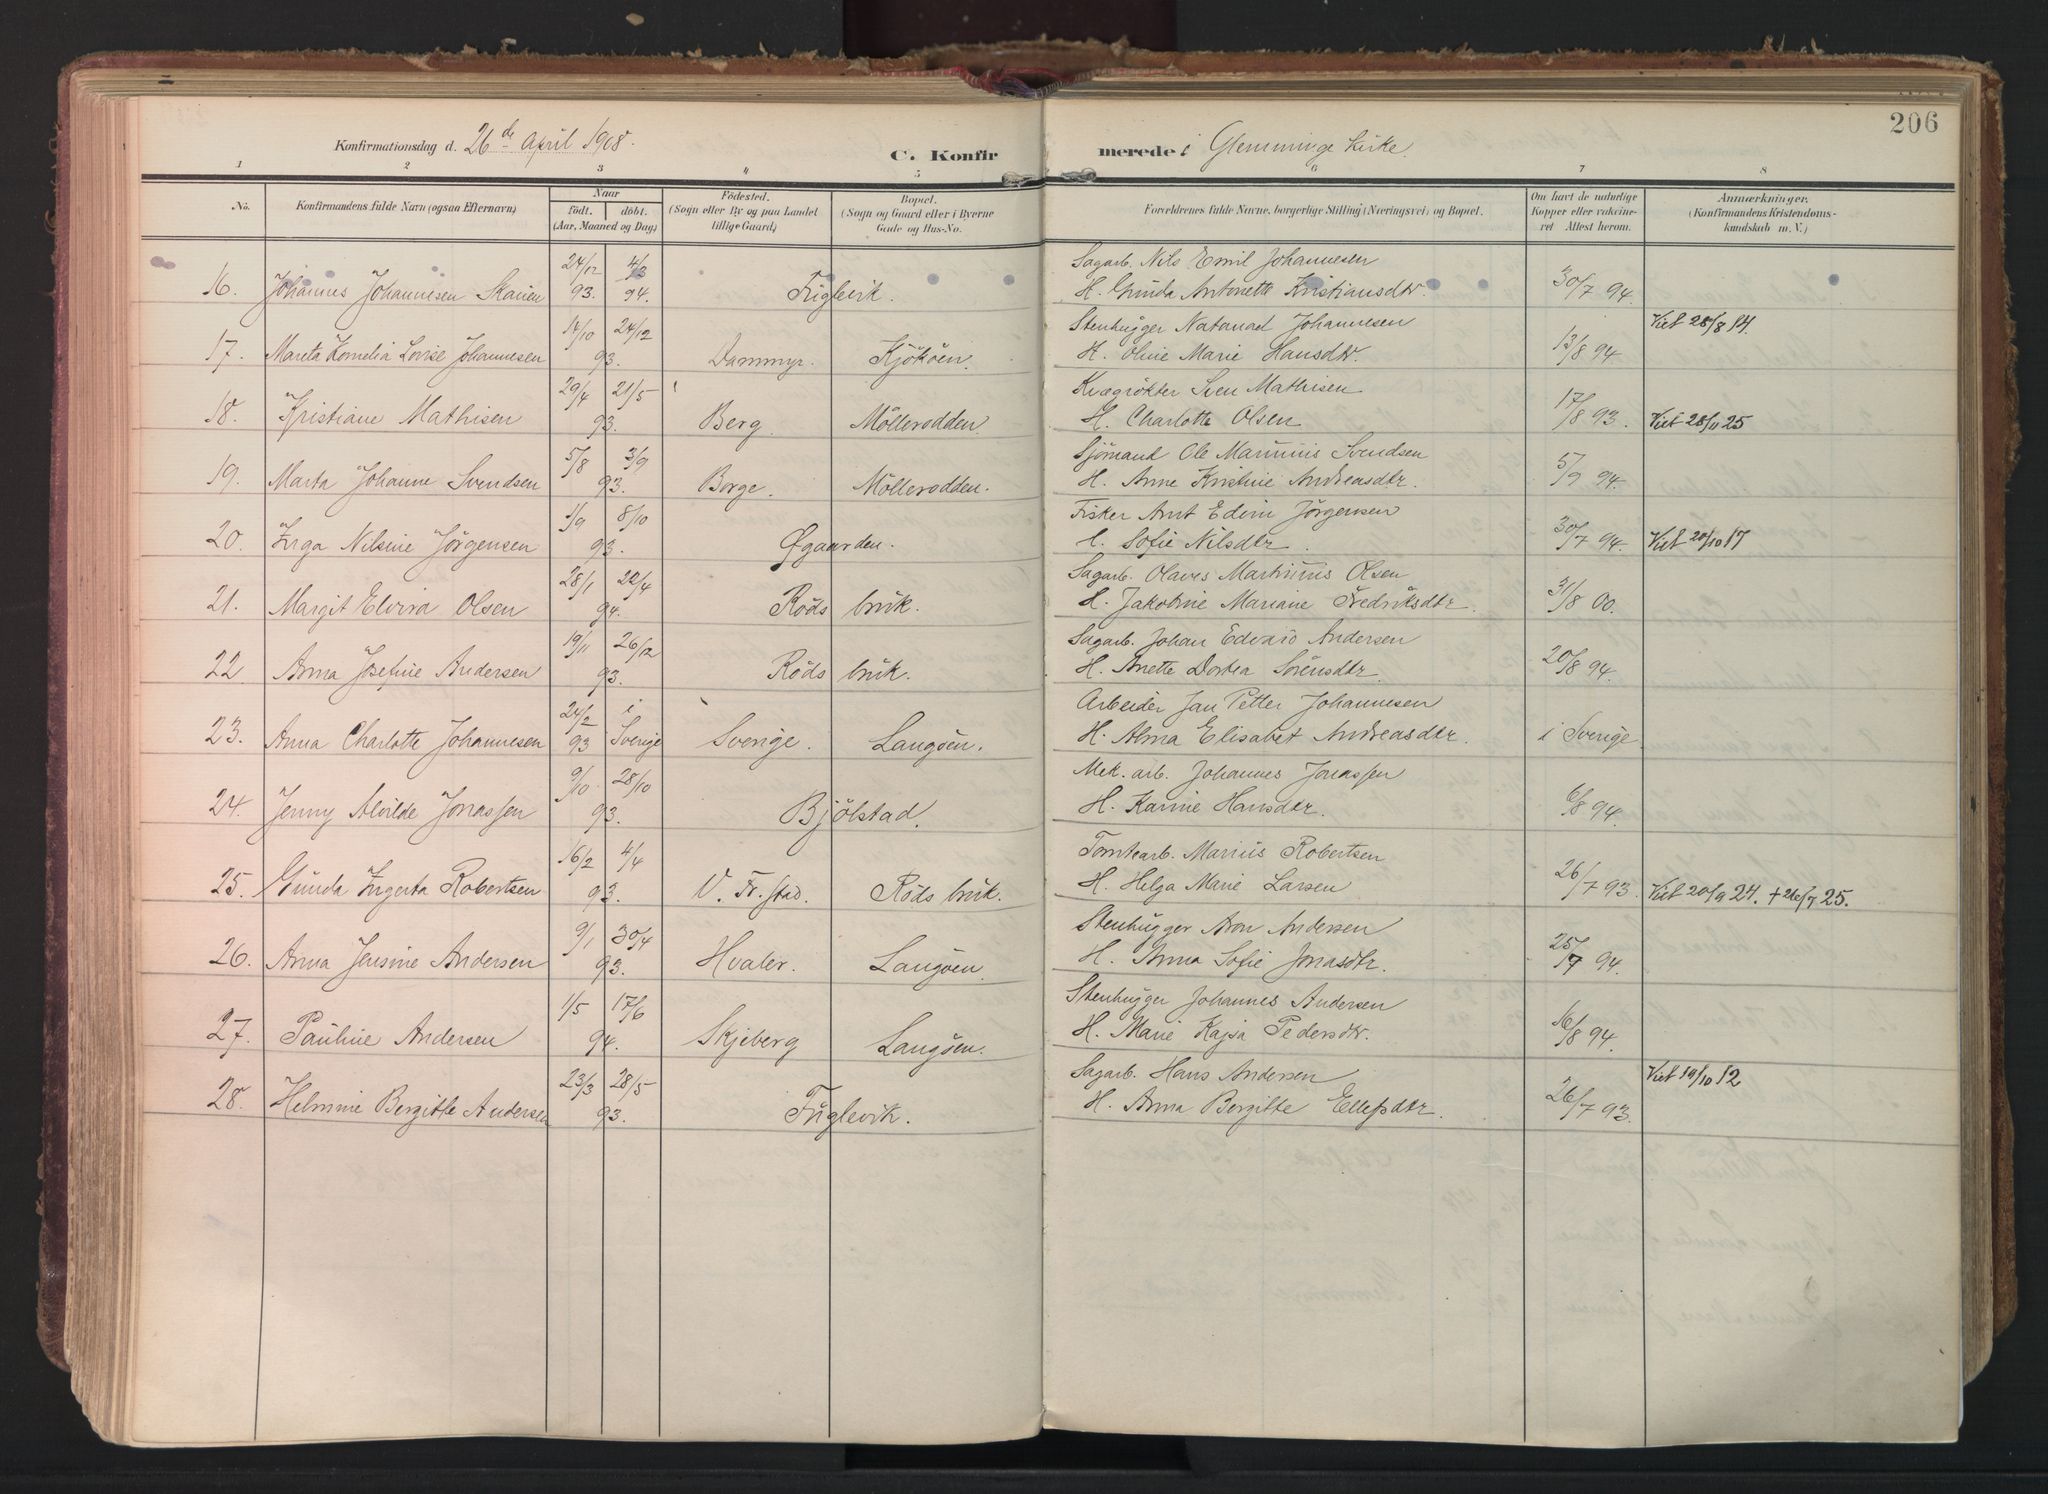 206
Konfirmationsdag d. 26de April 1908.
C. Konfirmerede i Glemminge Kirke.
1 2 3 4 5 6 7 8
No. Konfirmandens fulde Navn (ogsaa Efternavn) Naar födt. döbt. (Aar, Maaned og Dag) Födested. (Sogn eller By og paa Landet tillige Gaard.) Bopæl. (Sogn og Gaard eller i Byerne Gade og Hus-No. Forældrenes fulde Navne, borgerlige Stilling (Næringsvei) og Bopæl. Om havt de naturlige Kopper eller vakcineret Attest herom. Anmærkninger. (Konfirmandens Kristendomskundskab m. V.)
24/12 4/3 Sagarb. Nils Emil Johannesen
16. Johannes Johannesen Skauen 93. 94. Fuglevik. H. Gunda Antonette Kristiansdtr. 30/7 94.
14/10 24/12 Stenhugger Natanael Johannesen Viet 28/8 14.
17. Mareta Kornelia Lovise Johannesen 93. Dammyr. Kjököen. H. Oline Marie Hansdtr. 13/8 94
29/4 21/5 Kvægrökter Sven Mathisen
18. Kristiane Mathisen 93. Berg. Möllerodden H. Charlotte Olsen 17/8 93. Viet 28/11 25
5/8 3/9 Sjömand Ole Marinius Svendsen
19. Marta Johanne Svendsen 93. Borge. Möllerodden. H. Anne Kristine Andreasdtr. 5/9 94.
1/9 8/10 Fisker Arnt Edvin Jörgensen
20. Inga Nilsine Jörgensen 93. Øgaarden. H. Sofie Nilsdtr. 30/7 94. Viet 20/10 17
28/1 22/4 Sagarb. Olaves Martinius Olsen
21. Margit Elvira Olsen 94. Röds bruk. H. Jakobine Mariane Fredriksdtr. 31/8 00.
19/11 26/12 Sagarb. Johan Edvard Andersen
22. Anna Josefine Andersen 93. Röds bruk. H. Anette Dortea Sörensdtr. 20/8 94.
24/2 i Arbeider Jan Petter Johannesen
23. Anna Charlotte Johannesen 93 Sverige Sverige. Langöen. H. Alma Elisabet Andreasdtr. i Sverige.
9/10 28/10 Mek. arb. Johannes Jonassen
24. Jenny Alvilde Jonassen 93. Bjölstad. H. Karine Hansdtr. 6/8 94.
16/2 4/4 Tomtearb. Marius Robertsen
25. Gunda Ingerta Robertsen 93. V. Fr.stad. Röds bruk. H. Helga Marie Larsen 26/7 93. Viet 20/9 24. + 26/7 25.
9/1 30/4 Stenhugger Aron Andersen
26. Anna Jensine Andersen 93. Hvaler. Langöen. H. Anna Sofie Jonasdtr. 25/7 94.
1/5 17/6 Stenhugger Johannes Andersen
27. Pauline Andersen 94. Skjeberg Langöen. H. Marie Kajsa Pedersdtr. 16/8 94.
23/3 28/5 Sagarb. Hans Andersen Viet 19/10 12
28. Helmine Bergitte Andersen 93. Fuglevik. H. Anna Bergitte Ellefsdtr. 26/7 93.